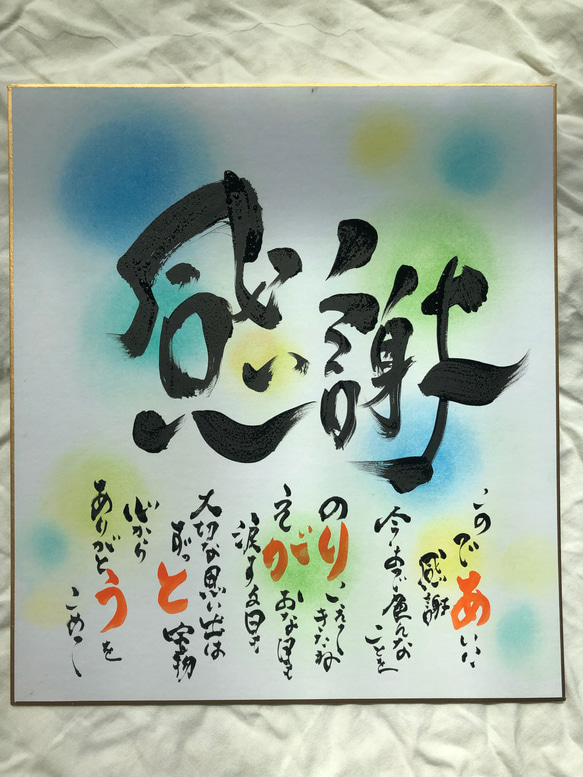 感謝
このであいに
感謝
今まで色んな
ことを
のりこえてきたね
えがおな日も
涙する日も
大切な思い出は
ずっと宝物
心から
ありがとうを
こめて